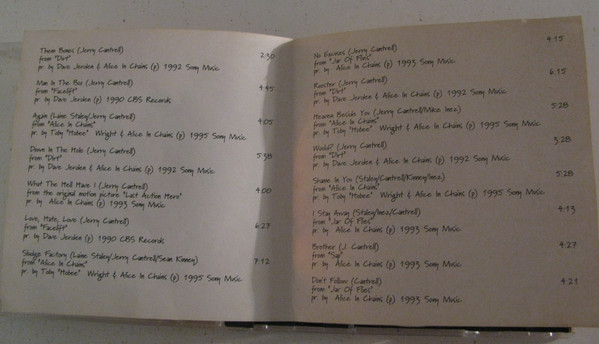 Them Bones (Jerry Cantrell) 2:30
from "Dirt"
pr. by Dave Jerden & Alice In Chains (p) 1992 Sony Music
Man In The Box (Jerry Cantrell) 4:45
from "Facelift"
pr. by Dave Jerden (p) 1990 CBS Records
Again (Laine Staley/Jerry Cantrell) 4:05
from "Alice In Chains"
pr. by Toby "Hotee" Wright & Alice In Chains (p) 1995 Sony Music
Down In The Hole (Jerry Cantrell) 5:38
from "Dirt"
pr. by Dave Jerden & Alice In Chains (p) 1992 Sony Music
What The Hell Have I (Jerry Cantrell) 4:00
from the original motion picture "Last Action Hero"
pr. by Alice In Chains (p) 1993 Sony Music
Love, Hate, Love (Jerry Cantrell) 6:27
from "Facelift"
pr. by Dave Jerden (p) 1990 CBS Records
Sludge Factory (Laine Staley/Jerry Cantrell/Sean Kinney) 7:12
from "Alice In Chains"
pr. by Toby "Hotee" Wright & Alice In Chains (p) 1995 Sony Music
No Excuses (Jerry Cantrell) 4:15
from "Jar Of Flies"
pr. by Alice In Chains (p) 1993 Sony Music
Rooster (Jerry Cantrell) 6:15
from "Dirt"
pr. by Dave Jerden & Alice In Chains (p) 1992 Sony Music
Heaven Beside You (Jerry Cantrell/Mike Inez) 5:28
from "Alice In Chains"
pr. by Toby "Hotee" Wright & Alice In Chains (p) 1995 Sony Music
Would? (Jerry Cantrell) 3:28
from "Dirt"
pr. by Dave Jerden & Alice In Chains (p) 1992 Sony Music
Shame In You (Staley/Cantrell/Kinney/Inez) 5:28
from "Alice In Chains"
pr. by Toby "Hotee" Wright & Alice In Chains (p) 1995 Sony Music
I Stay Away (Staley/Inez/Cantrell) 4:13
from "Jar Of Flies"
pr. by Alice In Chains (p) 1993 Sony Music
Brother (J. Cantrell) 4:27
from "Sap"
pr. by Alice In Chains (p) 1993 Sony Music
Don't Follow (Cantrell) 4:21
from "Jar Of Flies"
pr. by Alice In Chains (p) 1993 Sony Music